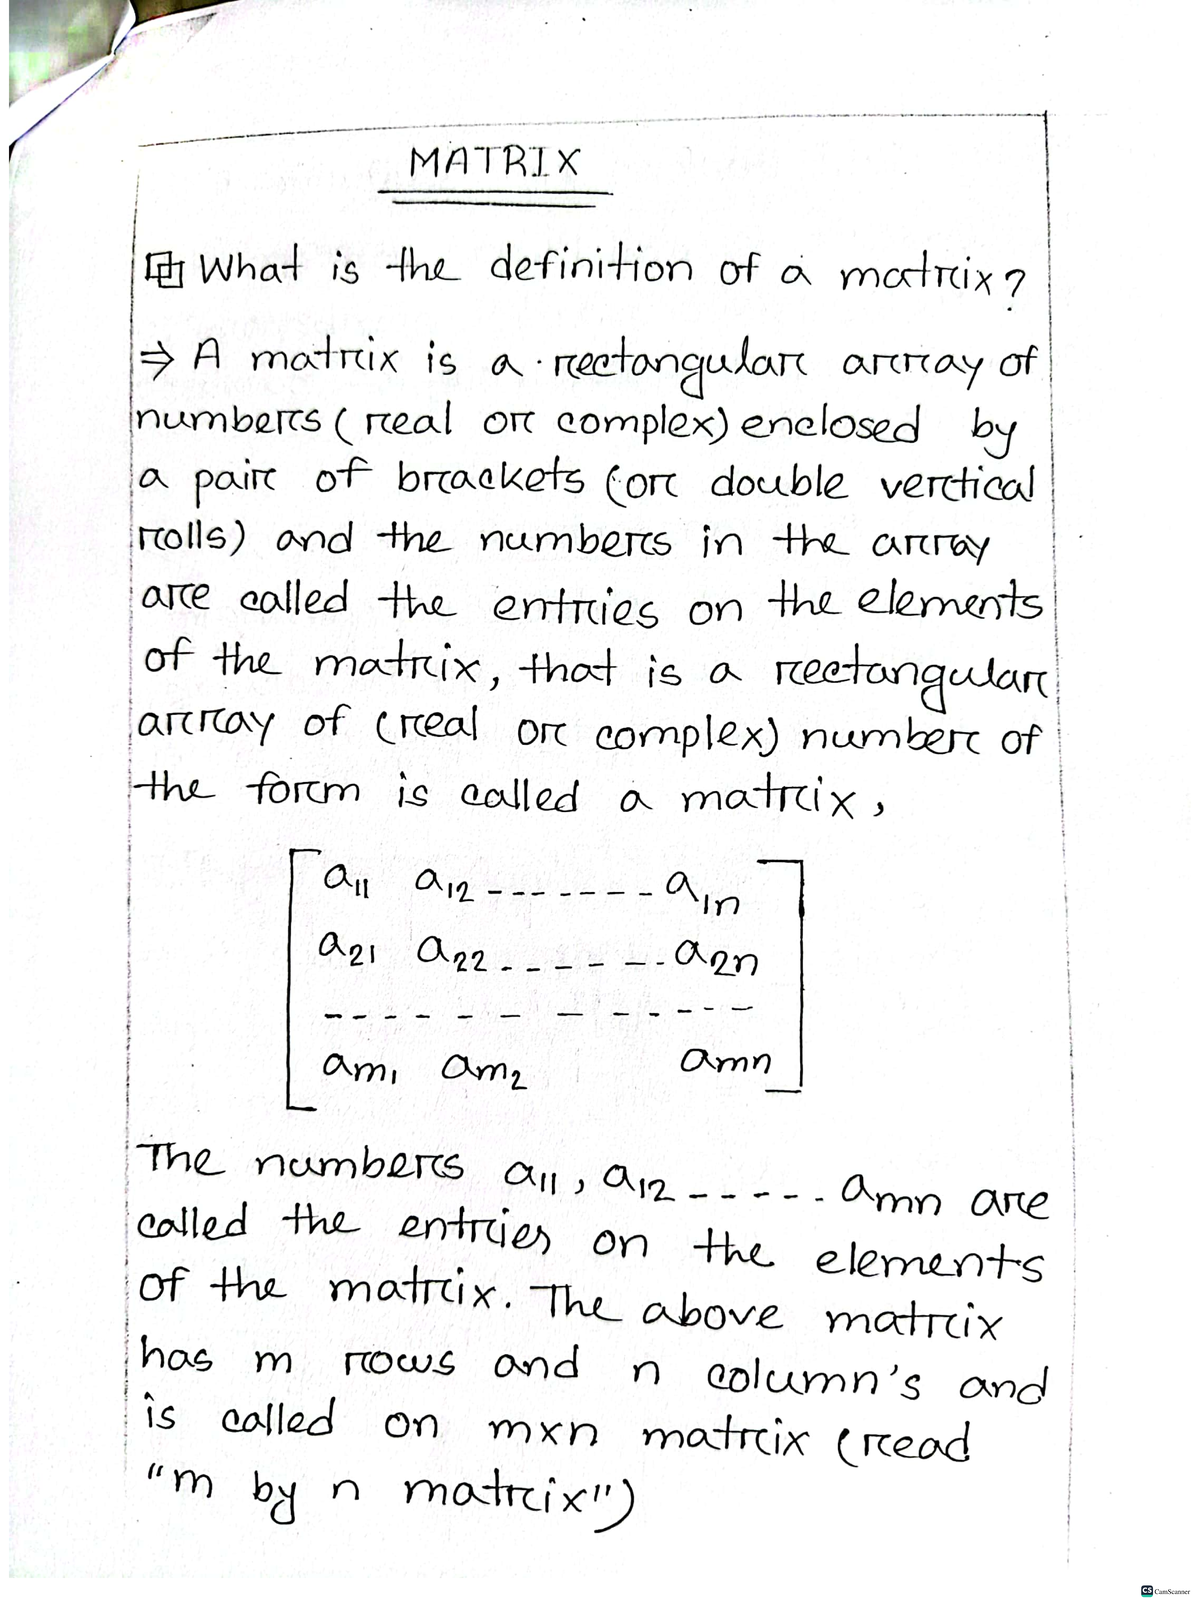 MATRIX
What is the definition of a matrix?
⇒ A matrix is a rectangular array of
numbers (real or complex) enclosed by
a pair of brackets (or double vertical
rolls) and the numbers in the array
are called the entries on the elements
of the matrix, that is a rectangular
array of (real or complex) number of
the form is called a matrix,
a11 a12 ------- a1n
a21 a22 ------ a2n
------------
am1 am2 amn
The numbers a11, a12 ------ amn are
called the entries on the elements
of the matrix. The above matrix
has m rows and n column's and
is called on mxn matrix (read
"m by n matrix")
CS CamScanner